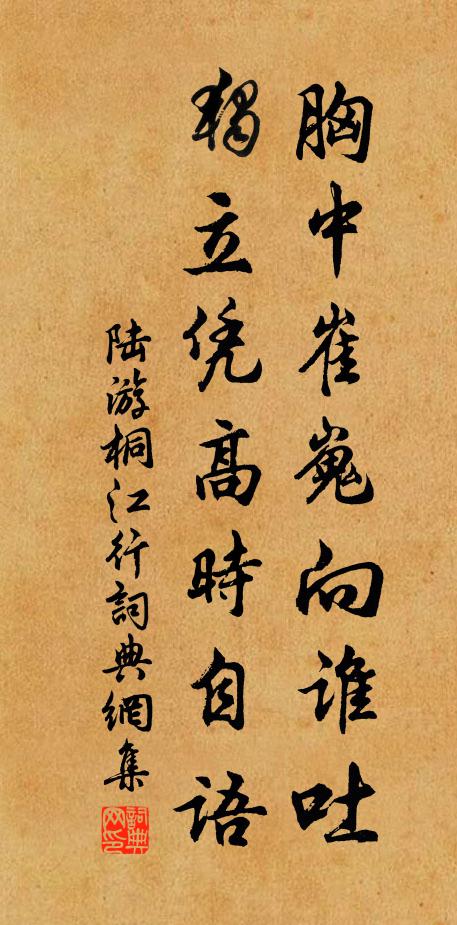 胸中崔嵬向谁吐
獨立凭高時自语
陆游桐江行詞典網集
詞典网印